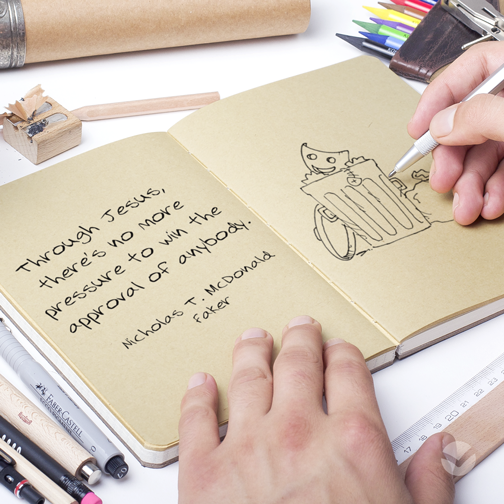 Through Jesus,
there's no more
pressure to win the
approval of anybody.
Nicholas T. McDonald
Faker
FABER-CASTELL